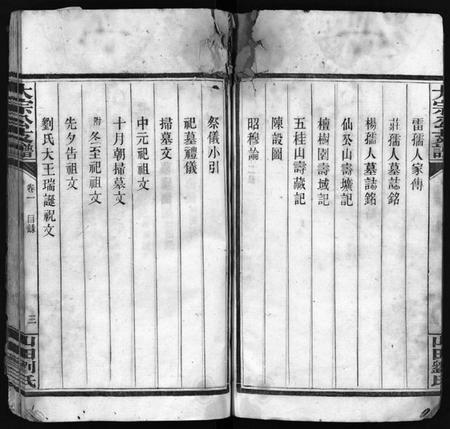 雷孺人家傳
莊孺人墓誌銘
楊孺人墓誌銘
仙公山壽壙記
檀樹園壽域記
五桂山壽藏記
陳設圖
昭穆論
祭儀小引
祀墓禮儀
掃墓文
中元祀祖文
十月朝掃墓文
附冬至祀祖文
先夕告祖文
劉氏大王瑞誕祝文
卷一 目錄 三
山田劉氏